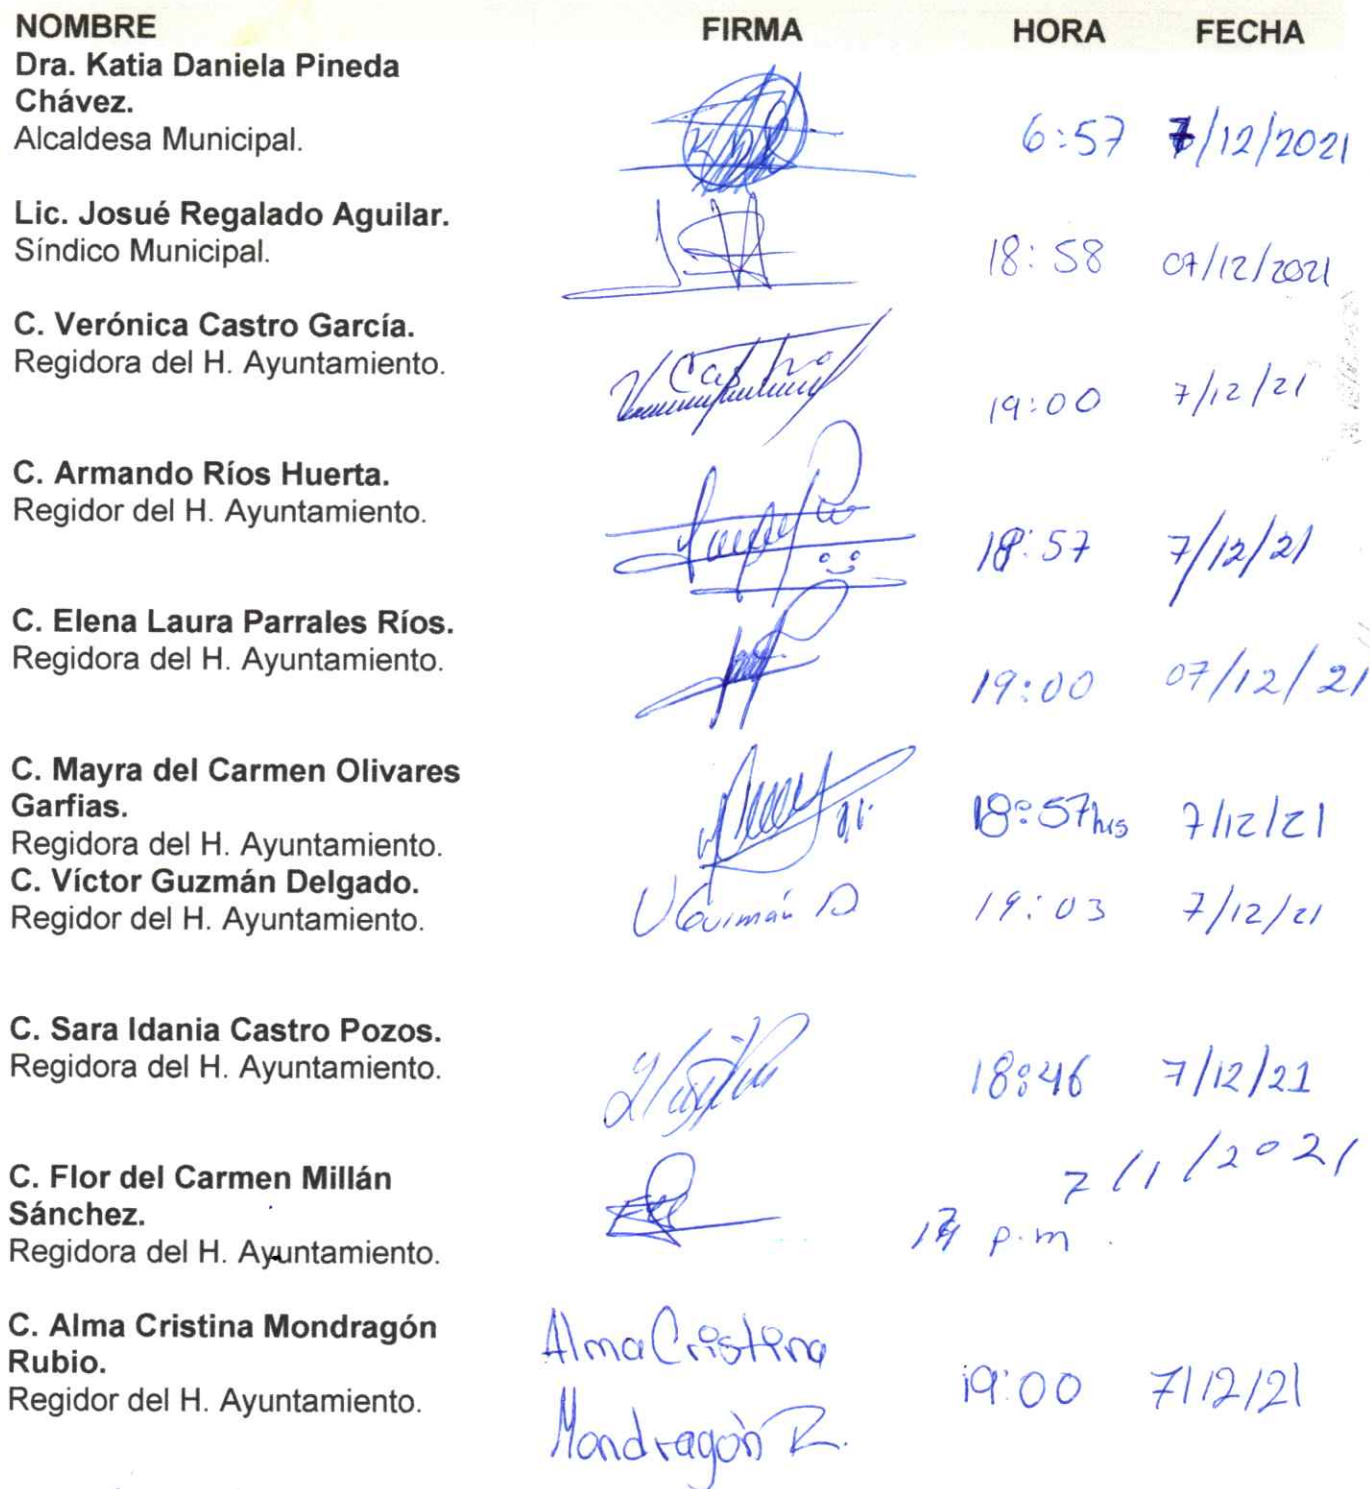 NOMBRE FIRMA HORA FECHA
Dra. Katia Daniela Pineda
Chávez.
Alcaldesa Municipal.
6:57 7/12/2021
Lic. Josué Regalado Aguilar.
Síndico Municipal.
18:58 07/12/2021
C. Verónica Castro García.
Regidora del H. Ayuntamiento.
V Castro
19:00 7/12/21
C. Armando Ríos Huerta.
Regidor del H. Ayuntamiento.
18:57 7/12/21
C. Elena Laura Parrales Ríos.
Regidora del H. Ayuntamiento.
19:00 07/12/21
C. Mayra del Carmen Olivares
Garfias.
Regidora del H. Ayuntamiento.
18:57hrs 7/12/21
C. Víctor Guzmán Delgado.
Regidor del H. Ayuntamiento.
V Guzmán D 19:03 7/12/21
C. Sara Idania Castro Pozos.
Regidora del H. Ayuntamiento.
18:46 7/12/21
7/1/2021
C. Flor del Carmen Millán
Sánchez.
Regidora del H. Ayuntamiento.
p.m.
C. Alma Cristina Mondragón
Rubio.
Regidor del H. Ayuntamiento.
Alma Cristina
Mondragón R.
19:00 7/12/21